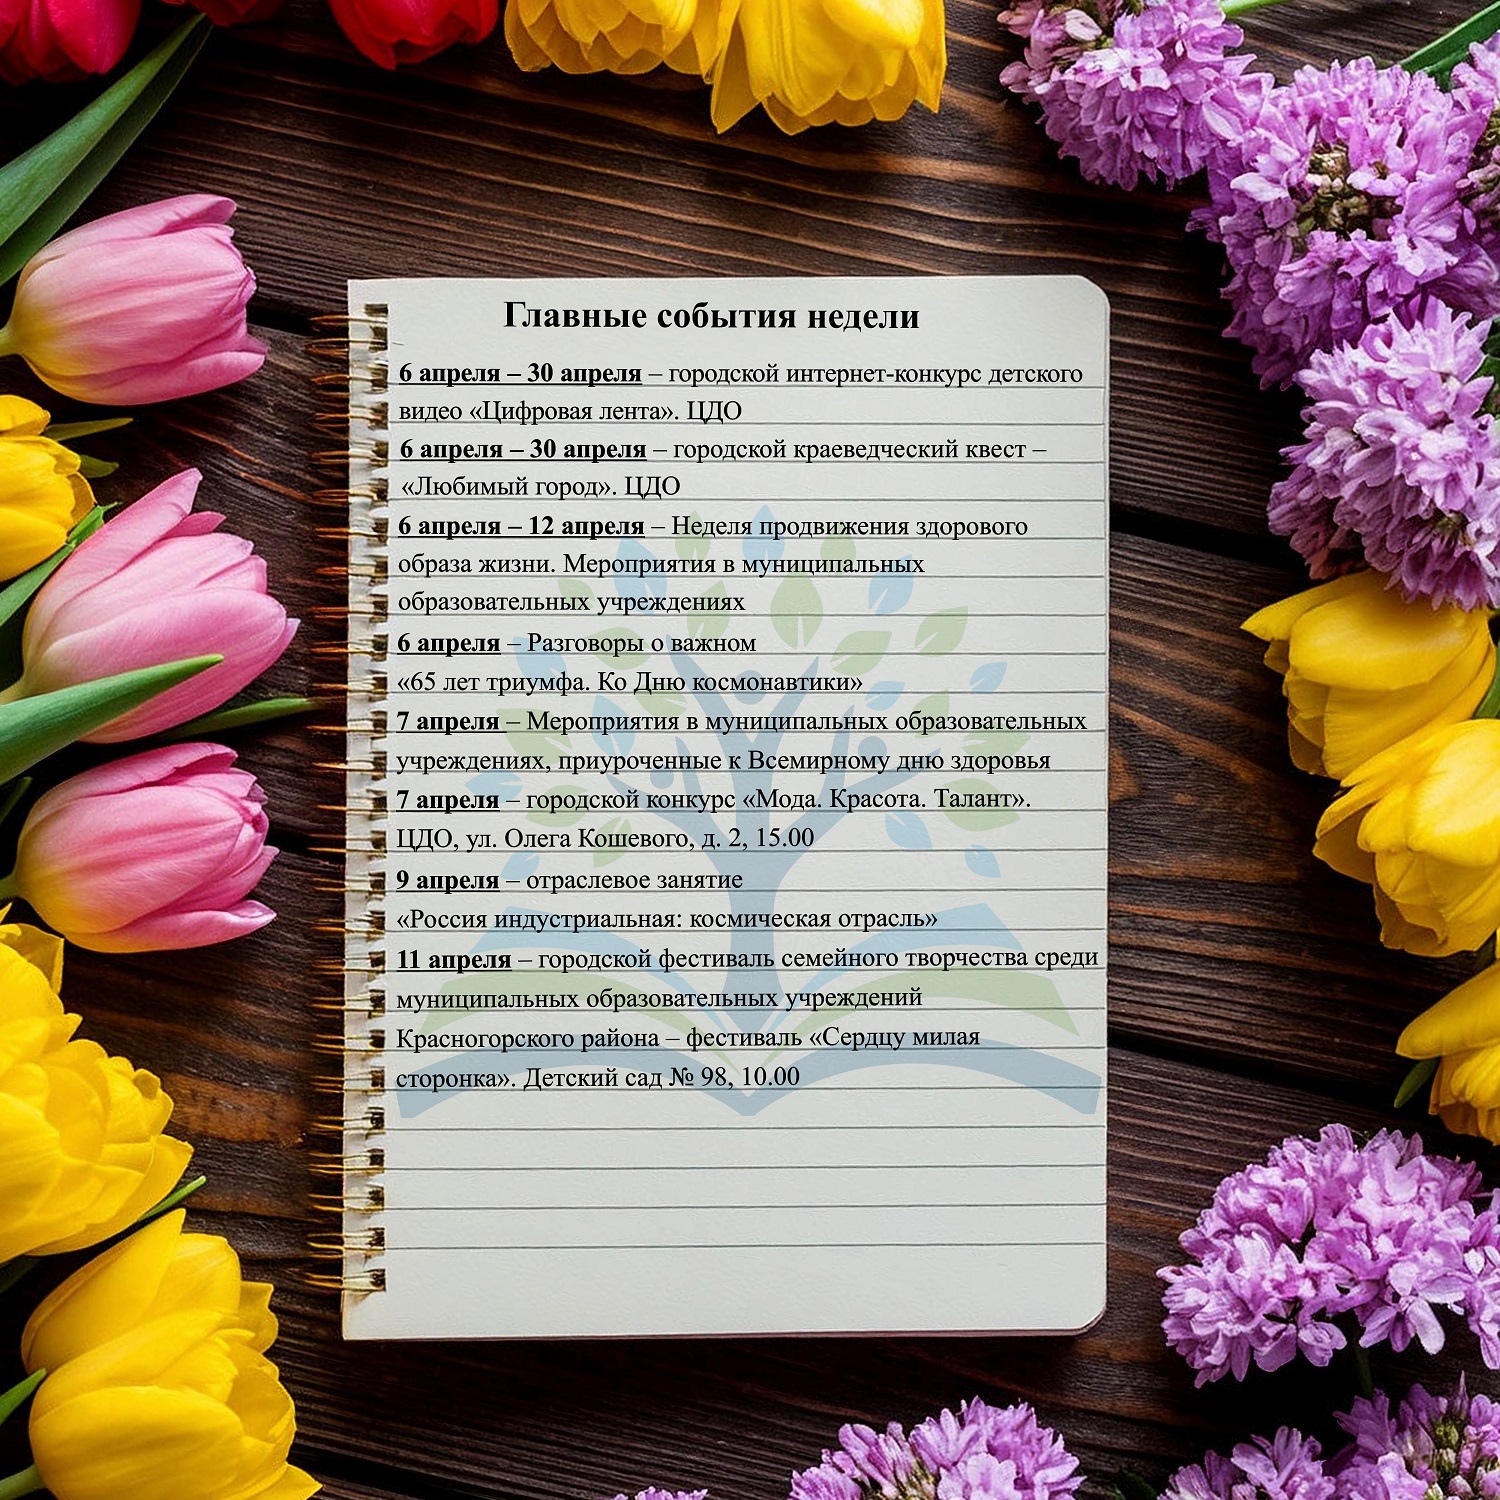 Главные события недели
6 апреля – 30 апреля – городской интернет-конкурс детского
видео «Цифровая лента». ЦДО
6 апреля – 30 апреля – городской краеведческий квест –
«Любимый город». ЦДО
6 апреля – 12 апреля – Неделя продвижения здорового
образа жизни. Мероприятия в муниципальных
образовательных учреждениях
6 апреля – Разговоры о важном
«65 лет триумфа. Ко Дню космонавтики»
7 апреля – Мероприятия в муниципальных образовательных
учреждениях, приуроченные к Всемирному дню здоровья
7 апреля – городской конкурс «Мода. Красота. Талант».
ЦДО, ул. Олега Кошевого, д. 2, 15.00
9 апреля – отраслевое занятие
«Россия индустриальная: космическая отрасль»
11 апреля – городской фестиваль семейного творчества среди
муниципальных образовательных учреждений
Красногорского района – фестиваль «Сердцу милая
сторонка». Детский сад № 98, 10.00